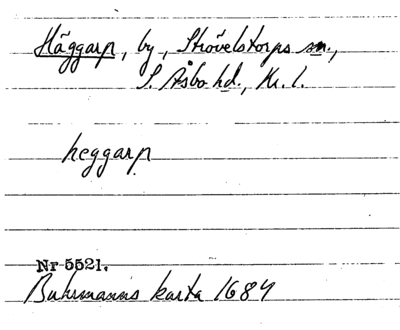 Häggarp, by, Strövelstorps sn.,
S. Åsbo hd., Kr. l.
heggarp
Nr 5521.
Buhrmanns karta 1684